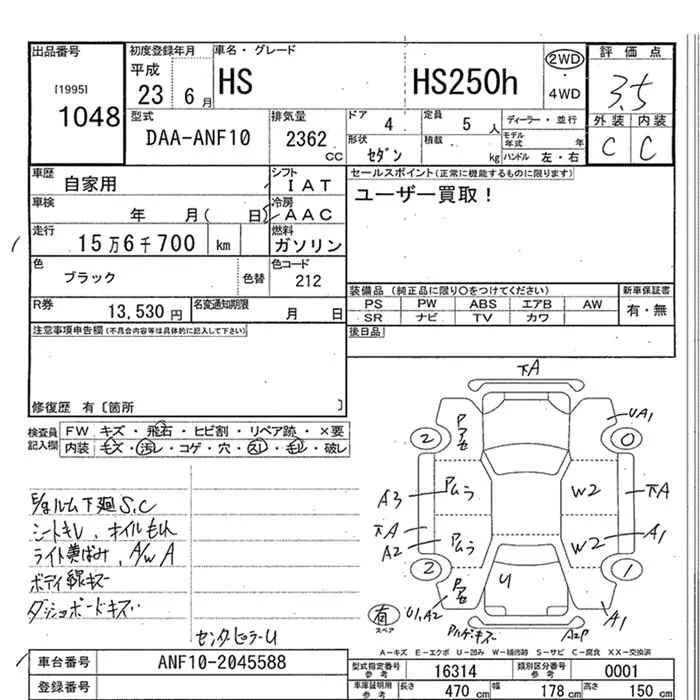 出品番号
[1995]
1048
初度登録年月
平成
23 6月
車名・グレード
HS HS250h
2WD
・
4WD
評価点
3.5
外装 内装
C C
型式
DAA-ANF10
排気量
2362
CC
ドア 4
定員 5 人
ディーラー・並行
形状
セダン
積載
kg
モデル
年式 年
ハンドル 左・右
車歴
自家用
シフト
IAT
車検
年 月( 日)
冷房
AAC
走行
15万6千700 km
燃料
ガソリン
色
ブラック
色替
色コード
212
R券
13,530円
名変通知期限
月 日
セールスポイント(正常に機能するものに限ります)
ユーザー買取!
装備品(純正品に限り○をつけてください)
新車保証書
PS PW ABS エアB AW
SR ナビ TV カワ
有・無
後日品
注意事項申告欄(不具合内容等は具体的に記入して下さい)
修復歴 有〔箇所 〕
検査員
記入欄
FW キズ・飛石・ヒビ割・リペア跡・×要
内装 キズ・汚レ・コゲ・穴・スレ・モレ・破レ
下廻S.C
シートキレ、オイルもれ
ライト黄ばみ、A/W A
ボディ線キズ
ダッシュボードキズ
下A
UA1
2
0
A3
W2
下A
下A
A2
W2
A1
2
1
U
U1,A2
A1
有
スペア
A2P
A-キズ E-エクボ U-凹み W-補修跡 S-サビ C-腐食 XX-交換済
車台番号
ANF10-2045588
登録番号
型式指定番号
参考
16314
類別区分番号
参考
0001
車庫証明用
参考
長さ 470 cm
幅 178 cm
高さ 150 cm